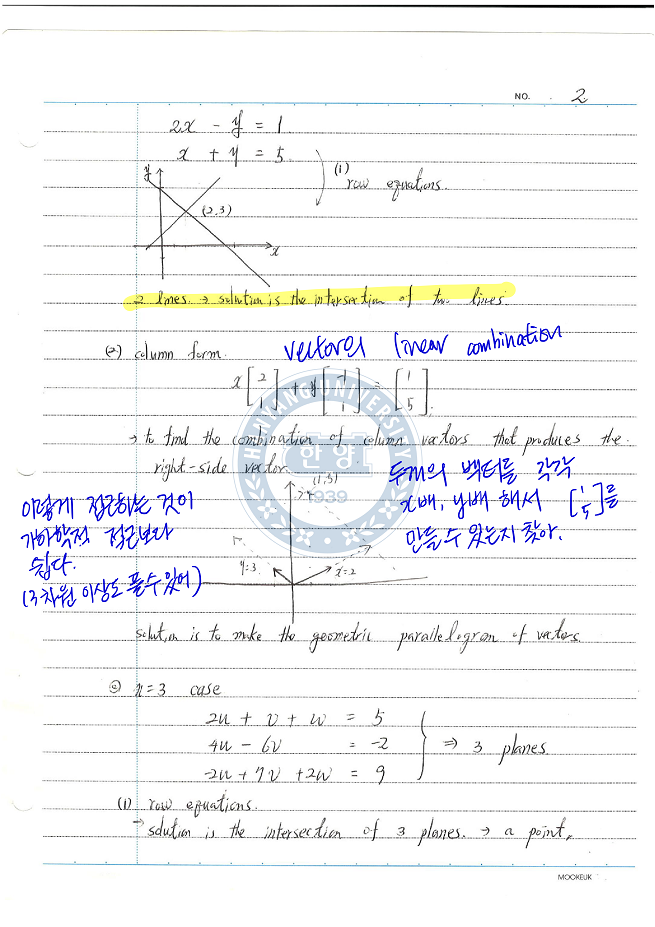 NO. 2
2x - y = 1
x + y = 5
(1) row equations.
y
(2,3)
x
2 lines. → solution is the intersection of two lines
(2) column form. vector의 linear combination
x[2 1] + y[-1 1] = [1 5].
→ to find the combination of column vectors that produces the
right-side vector.
HANYANG UNIVERSITY
한양
1939
(1,5)
두개의 벡터를 각각
x배, y배 해서 [1 5]를
만들 수 있는지 찾아.
이렇게 접근하는 것이
기하학적 접근보다
쉽다.
(3차원 이상도 풀 수 있어)
y=3
x=2
solution is to make the geometric parallelogram of vectors
② n=3 case
2u + v + w = 5
4u - 6v = -2
-2u + 7v + 2w = 9
⇒ 3 planes.
(1) row equations.
→ solution is the intersection of 3 planes. → a point.
MOOKEUK